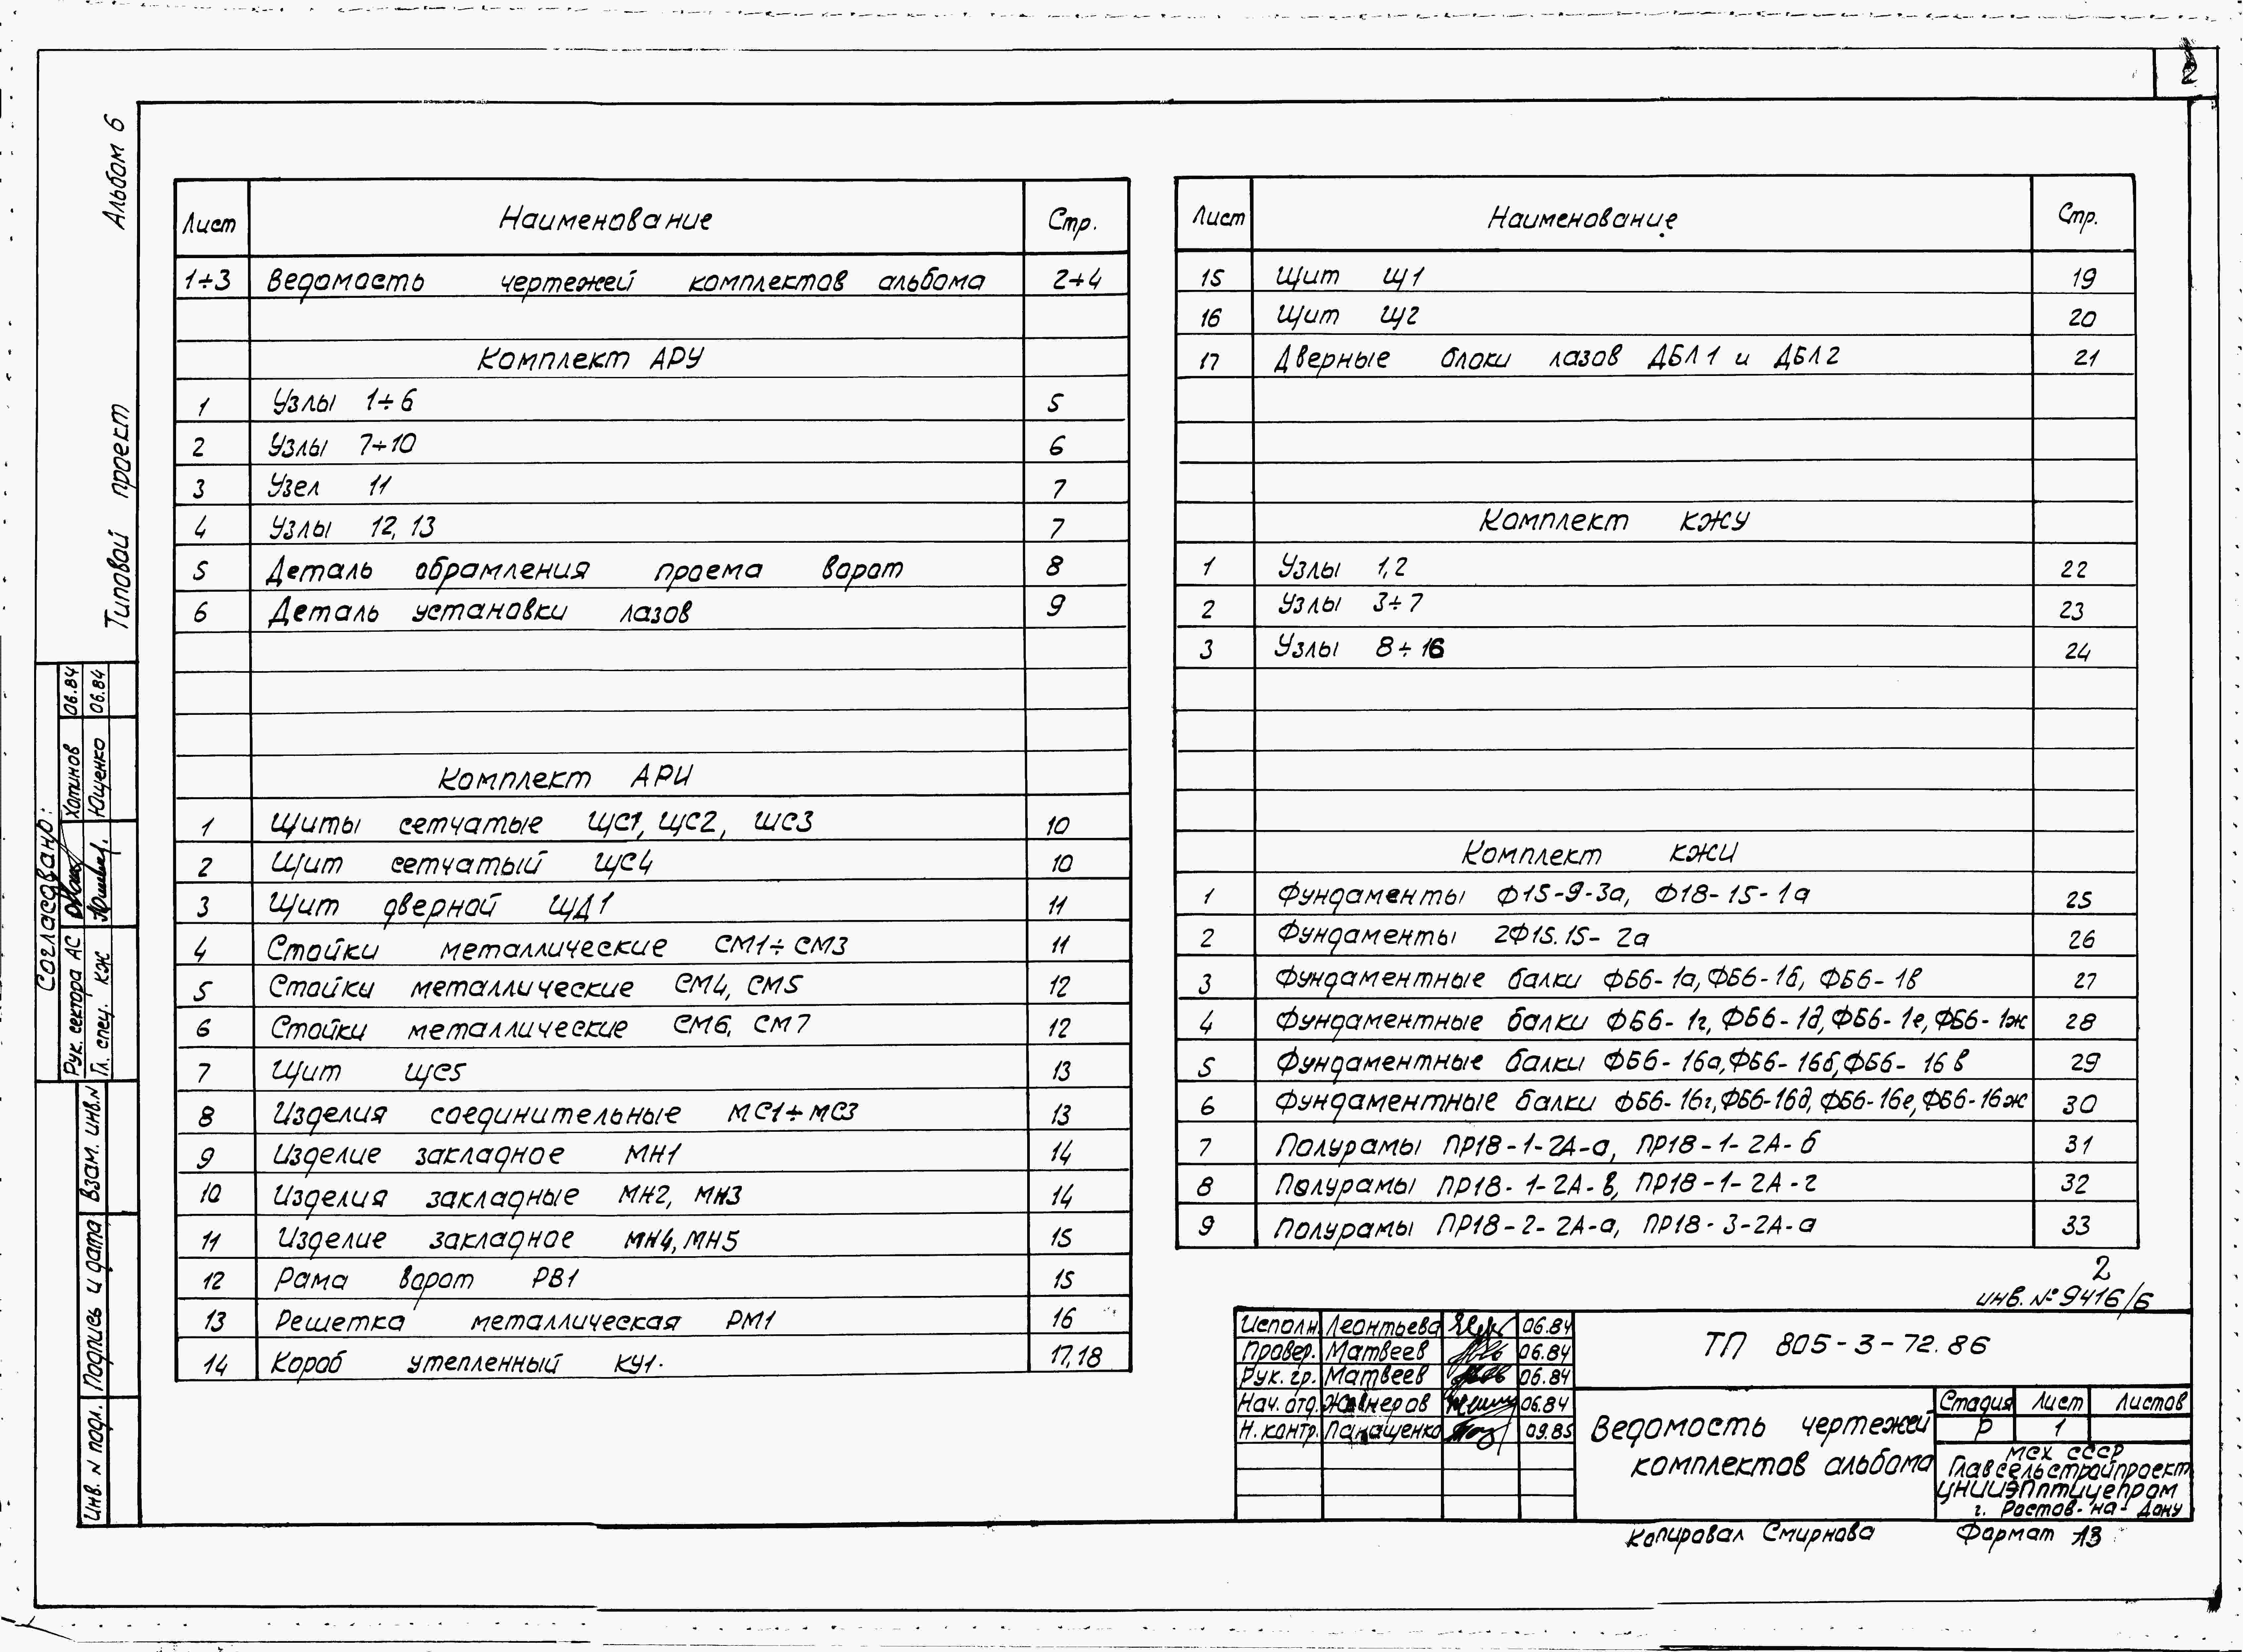 2
Альбом 6
Типовой проект
Лист Наименование Стр.
1÷3 Ведомость чертежей комплектов альбома 2÷4
Комплект АРУ
1 Узлы 1÷6 5
2 Узлы 7÷10 6
3 Узел 11 7
4 Узлы 12, 13 7
5 Деталь обрамления проема ворот 8
6 Деталь установки лазов 9
Комплект АРИ
1 Щиты сетчатые ЩС1, ЩС2, ЩС3 10
2 Щит сетчатый ЩС4 10
3 Щит дверной ЩД1 11
4 Стойки металлические СМ1÷СМ3 11
5 Стойки металлические СМ4, СМ5 12
6 Стойки металлические СМ6, СМ7 12
7 Щит ЩС5 13
8 Изделия соединительные МС1÷МС3 13
9 Изделие закладное МН1 14
10 Изделия закладные МН2, МН3 14
11 Изделие закладное МН4, МН5 15
12 Рама ворот РВ1 15
13 Решетка металлическая РМ1 16
14 Короб утепленный КУ1. 17,18
Лист Наименование Стр.
15 Щит Щ1 19
16 Щит Щ2 20
17 Дверные блоки лазов ДБЛ1 и ДБЛ2 21
Комплект КЖУ
1 Узлы 1,2 22
2 Узлы 3÷7 23
3 Узлы 8÷16 24
Комплект КЖИ
1 Фундаменты Ф15-9-3а, Ф18-15-1а 25
2 Фундаменты 2Ф15.15-2а 26
3 Фундаментные балки ФБ6-1а, ФБ6-1б, ФБ6-1в 27
4 Фундаментные балки ФБ6-1г, ФБ6-1д, ФБ6-1е, ФБ6-1ж 28
5 Фундаментные балки ФБ6-16а, ФБ6-16б, ФБ6-16в 29
6 Фундаментные балки ФБ6-16г, ФБ6-16д, ФБ6-16е, ФБ6-16ж 30
7 Полурамы ПР18-1-2А-а, ПР18-1-2А-б 31
8 Полурамы ПР18-1-2А-в, ПР18-1-2А-г 32
9 Полурамы ПР18-2-2А-а, ПР18-3-2А-а 33
2
инв. № 9416/6
Исполн. Леонтьева 06.84
Провер. Матвеев 06.84
Рук. гр. Матвеев 06.84
Нач. отд. Жовнеров 06.84
Н. контр. Панащенко 09.85
ТП 805-3-72.86
Ведомость чертежей
комплектов альбома
Стадия Лист Листов
Р 1
МСХ СССР
Главсельстройпроект
ЦНИИЭПптицепром
г. Ростов-на-Дону
Копировал Смирнова Формат А3
Согласовано:
Рук. сектора АС Хатинов 06.84
Гл. спец. КЖ Ющенко 06.84
Взам. инв. N
Подпись и дата
Инв. N подл.